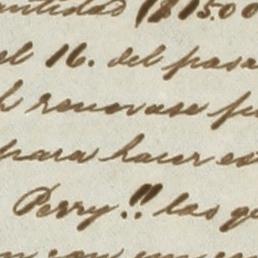 antidad ($15.00
el 16. del pasa
renovase
para hacer es
Perry!! las